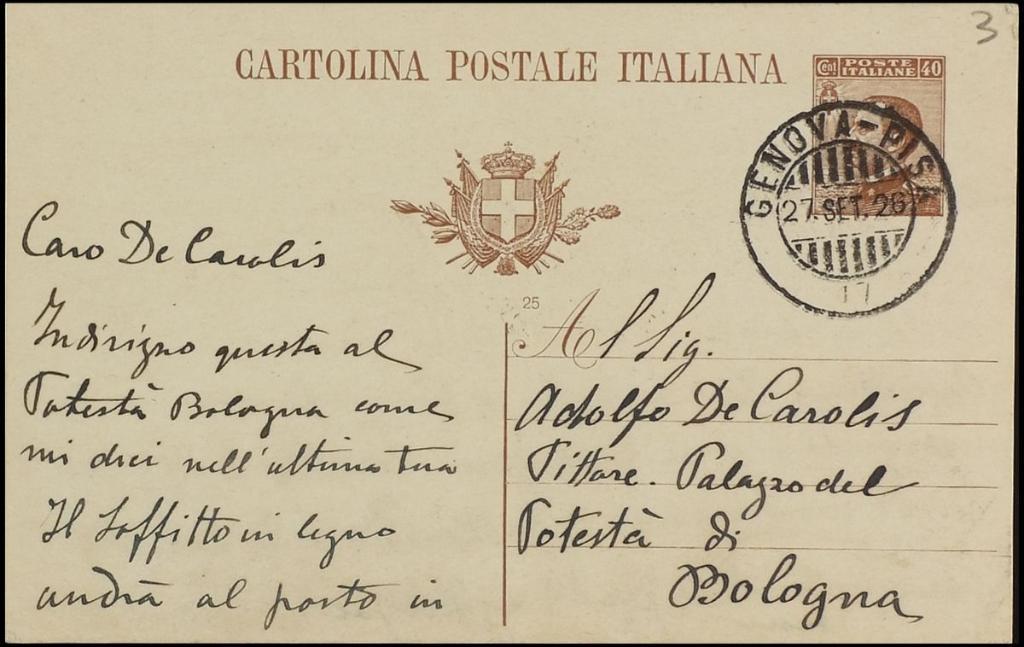 3
CARTOLINA POSTALE ITALIANA
Cent POSTE ITALIANE 40
GENOVA-PISA
27.SET.26
17
25
Caro De Carolis
Indirizzo questa al
Potestà Bologna come
mi dici nell'ultima tua
Il soffitto in legno
andrà al posto in
Al Sig.
Adolfo De Carolis
Pittore. Palazzo del
Potestà di
Bologna